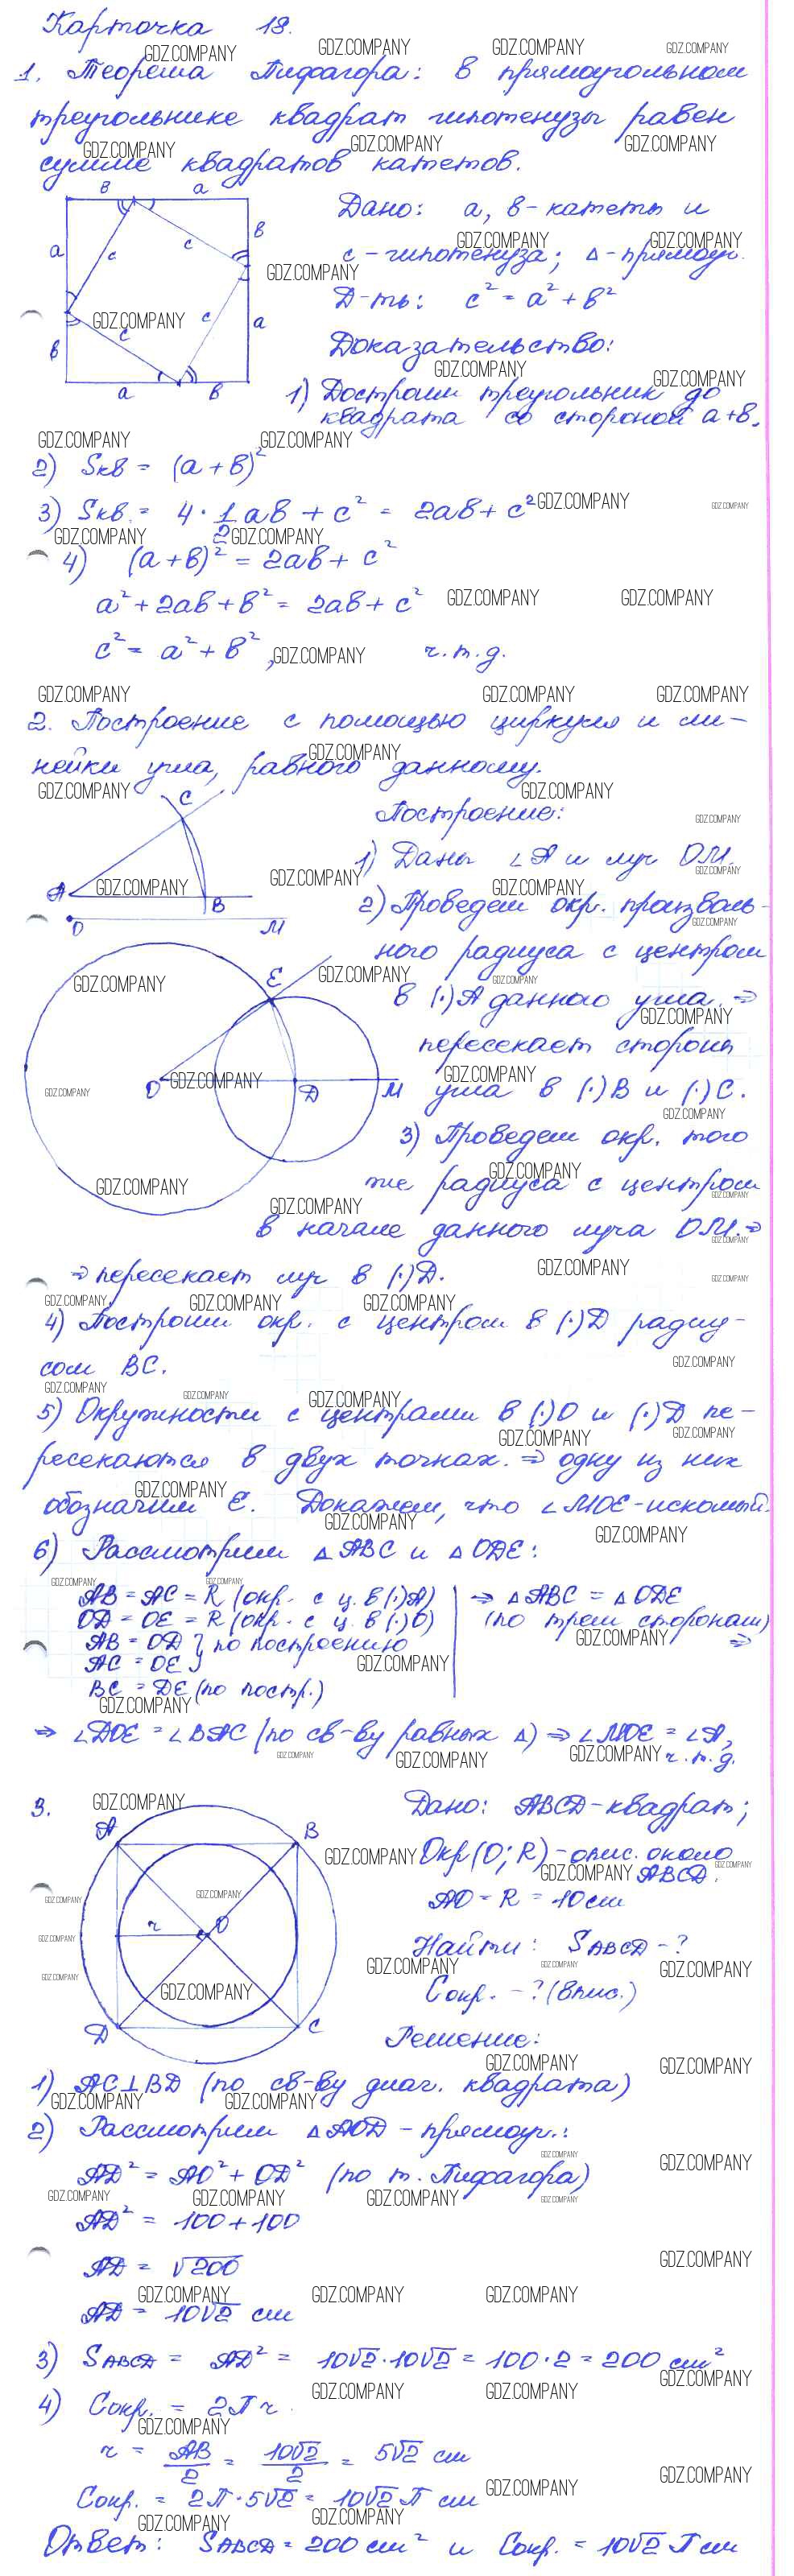 Карточка 18.
1. Теорема Пифагора: в прямоугольном
треугольнике квадрат гипотенузы равен
сумме квадратов катетов.
Дано: a, b - катеты и
c - гипотенуза; Δ - прямоуг.
Д-ть: c² = a² + b²
Доказательство:
1) Достроим треугольник до
квадрата со стороной a+b.
2) Sкв = (a + b)²
3) Sкв. = 4 · 1/2 ab + c² = 2ab + c²
4) (a + b)² = 2ab + c²
a² + 2ab + b² = 2ab + c²
c² = a² + b², ч.т.д.
2. Построение с помощью циркуля и ли-
нейки угла, равного данному.
Построение:
1) Даны ∠A и луч OM.
2) Проведем окр. произволь-
ного радиуса с центром
в (·)A данного угла. ⇒
пересекает стороны
угла в (·)B и (·)C.
3) Проведем окр. того
же радиуса с центром
в начале данного луча OM. ⇒
⇒ пересекает луч в (·)D.
4) Построим окр. с центром в (·)D радиу-
сом BC.
5) Окружности с центрами в (·)O и (·)D пе-
ресекаются в двух точках. ⇒ одну из них
обозначим E. Докажем, что ∠MOE - искомый.
6) Рассмотрим Δ ABC и Δ ODE:
AB = AC = R (окр. с ц. в (·)A) ⇒ Δ ABC = Δ ODE
OD = OE = R (окр. с ц. в (·)O) (по трем сторонам)
AB = OD } по построению ⇒
AC = OE
BC = DE (по постр.)
⇒ ∠DOE = ∠BAC (по св-ву равных Δ) ⇒ ∠MOE = ∠A,
ч.т.д.
3. Дано: ABCD - квадрат;
Окр(O; R) - опис. около
ABCD.
AO = R = 10 см
Найти: SABCD - ?
Cокр. - ? (впис.)
Решение:
1) AC ⊥ BD (по св-ву диаг. квадрата)
2) Рассмотрим Δ AOD - прямоуг.:
AD² = AO² + OD² (по т. Пифагора)
AD² = 100 + 100
AD = √200
AD = 10√2 см
3) SABCD = AD² = 10√2 · 10√2 = 100 · 2 = 200 см²
4) Cокр. = 2πr.
r = AB/2 = 10√2/2 = 5√2 см
Cокр. = 2π · 5√2 = 10√2 π см
Ответ: SABCD = 200 см² и Cокр. = 10√2 π см
GDZ.COMPANY